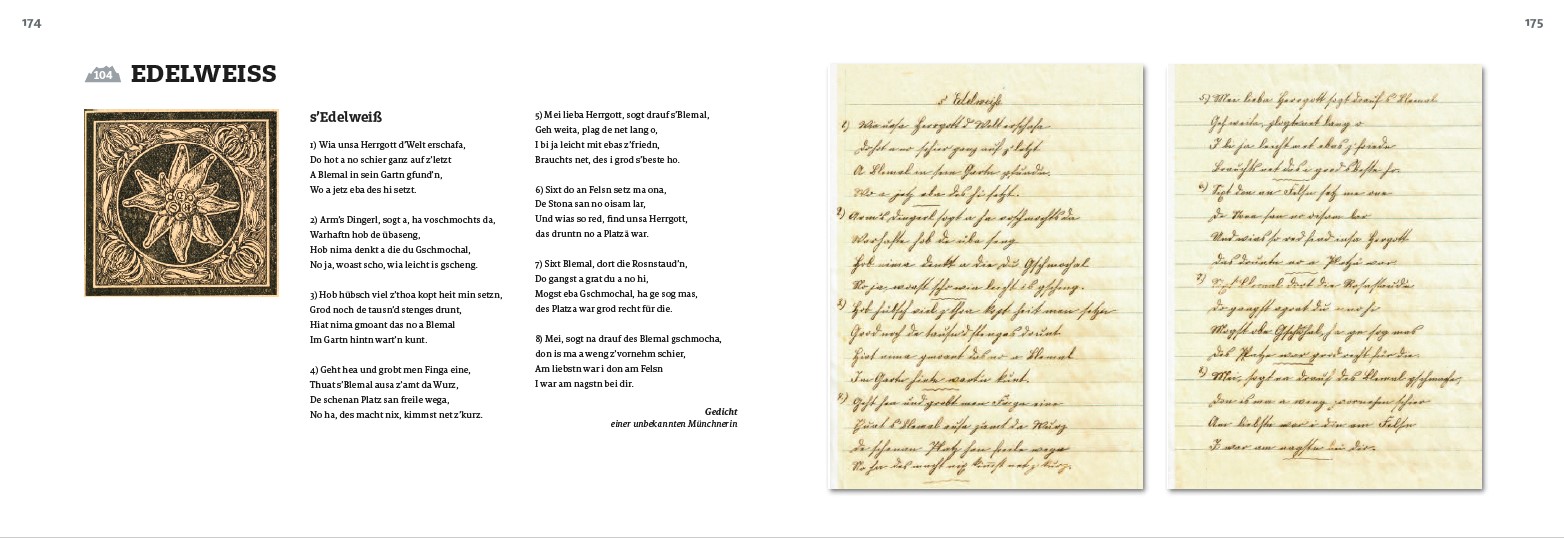 174
104 EDELWEISS
s’Edelweiß
1) Wia unsa Herrgott d’Welt erschafa,
Do hot a no schier ganz auf z’letzt
A Blemal in sein Gartn gfund’n,
Wo a jetz eba des hi setzt.
2) Arm’s Dingerl, sogt a, ha voschmochts da,
Warhaftn hob de übaseng,
Hob nima denkt a die du Gschmochal,
No ja, woast scho, wia leicht is gscheng.
3) Hob hübsch viel z’thoa kopt heit min setzn,
Grod noch de tausn’d stenges drunt,
Hiat nima gmoant das no a Blemal
Im Gartn hintn wart’n kunt.
4) Geht hea und grobt men Finga eine,
Thuat s’Blemal ausa z’amt da Wurz,
De schenan Platz san freile wega,
No ha, des macht nix, kimmst net z’kurz.
5) Mei lieba Herrgott, sogt drauf s’Blemal,
Geh weita, plag de net lang o,
I bi ja leicht mit ebas z’friedn,
Brauchts net, des i grod s’beste ho.
6) Sixt do an Felsn setz ma ona,
De Stona san no oisam lar,
Und wias so red, find unsa Herrgott,
das druntn no a Platzä war.
7) Sixt Blemal, dort die Rosnstaud’n,
Do gangst a grat du a no hi,
Mogst eba Gschmochal, ha ge sog mas,
des Platz a war grod recht für die.
8) Mei, sogt na drauf des Blemal gschmocha,
don is ma a weng z’vornehm schier,
Am liebstn war i don am Felsn
I war am nagstn bei dir.
Gedicht
einer unbekannten Münchnerin
175
s’ Edelweiß
1) Wia unsa Herrgott d’ Welt erschafa
Do hot a no schier ganz auf z’letzt
A Blemal in sein Gartn gfundn.
Wo a jetz eba des hi setzt.
2) Arm’s Dingerl sogt a ha voschmochts da
Warhaftn hob de üba seng
Hob nima denkt a die du Gschmochal
No ja, woast scho wia leicht is gscheng.
3) Hob hübsch viel z’thoa kopt heit men setzn
Grod noch de tausn’d stenges drunt
Hiat nima gmoant das no a Blemal
Im Gartn hintn wartn kunt.
4) Geht hea und grobt men Finga eine
Thuat s Blemal ausa zamt da Wurz
De schenan Platz san freile wega
No ha des macht nix kimmst net z’kurz.
5) Mei lieba Herrgott sogt drauf s Blemal
Geh weita, plag de net lang o
I bi ja leicht mit ebas z’friedn
Brauchts net das i grod s’beste ho.
6) Sixt don an Felsn setz ma ona
De Stona san no oisam lar
Und wias so red find unsa Herrgott
das druntn no a Platzä war
7) Sixt Blemal dort die Rosnstaudn
Do gangst a grat du a no hi
Mogst eba Gschmochal, ha ge sog mas
des Platz a war grod recht für die.
8) Mei, sogt na drauf des Blemal gschmocha,
don is ma a weng z’vornehm schier
Am liebstn war i don am Felsn
I war am nagstn bei dir.